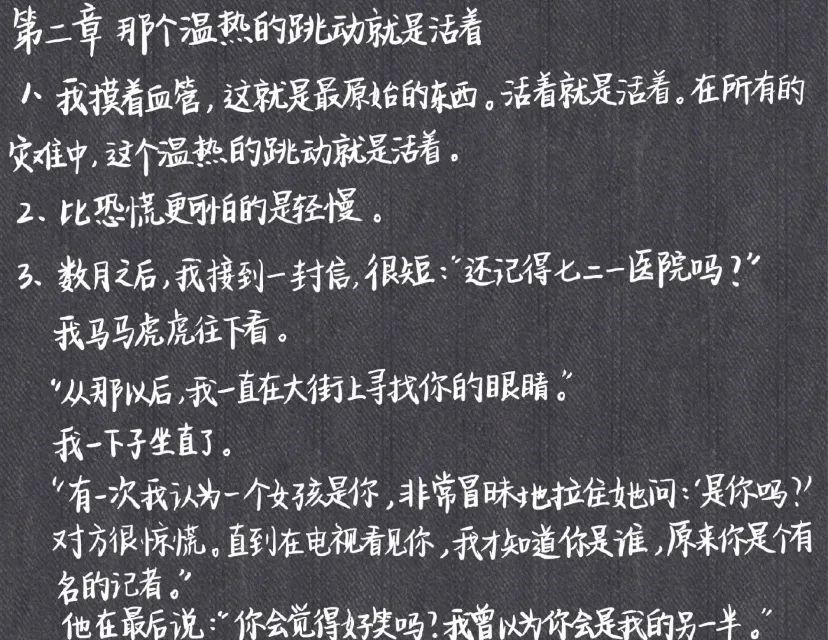 第二章 那个温热的跳动就是活着
1、我摸着血管，这就是最原始的东西。活着就是活着。在所有的
灾难中，这个温热的跳动就是活着。
2、比恐慌更可怕的是轻慢。
3、数月之后，我接到一封信，很短：“还记得七二一医院吗？”
我马马虎虎往下看。
“从那以后，我一直在大街上寻找你的眼睛。”
我一下子坐直了。
“有一次我认为一个女孩是你，非常冒昧地拉住她问：‘是你吗？’
对方很惊慌。直到在电视看见你，我才知道你是谁，原来你是个有
名的记者。”
他在最后说：“你会觉得好笑吗？我曾以为你会是我的另一半。”